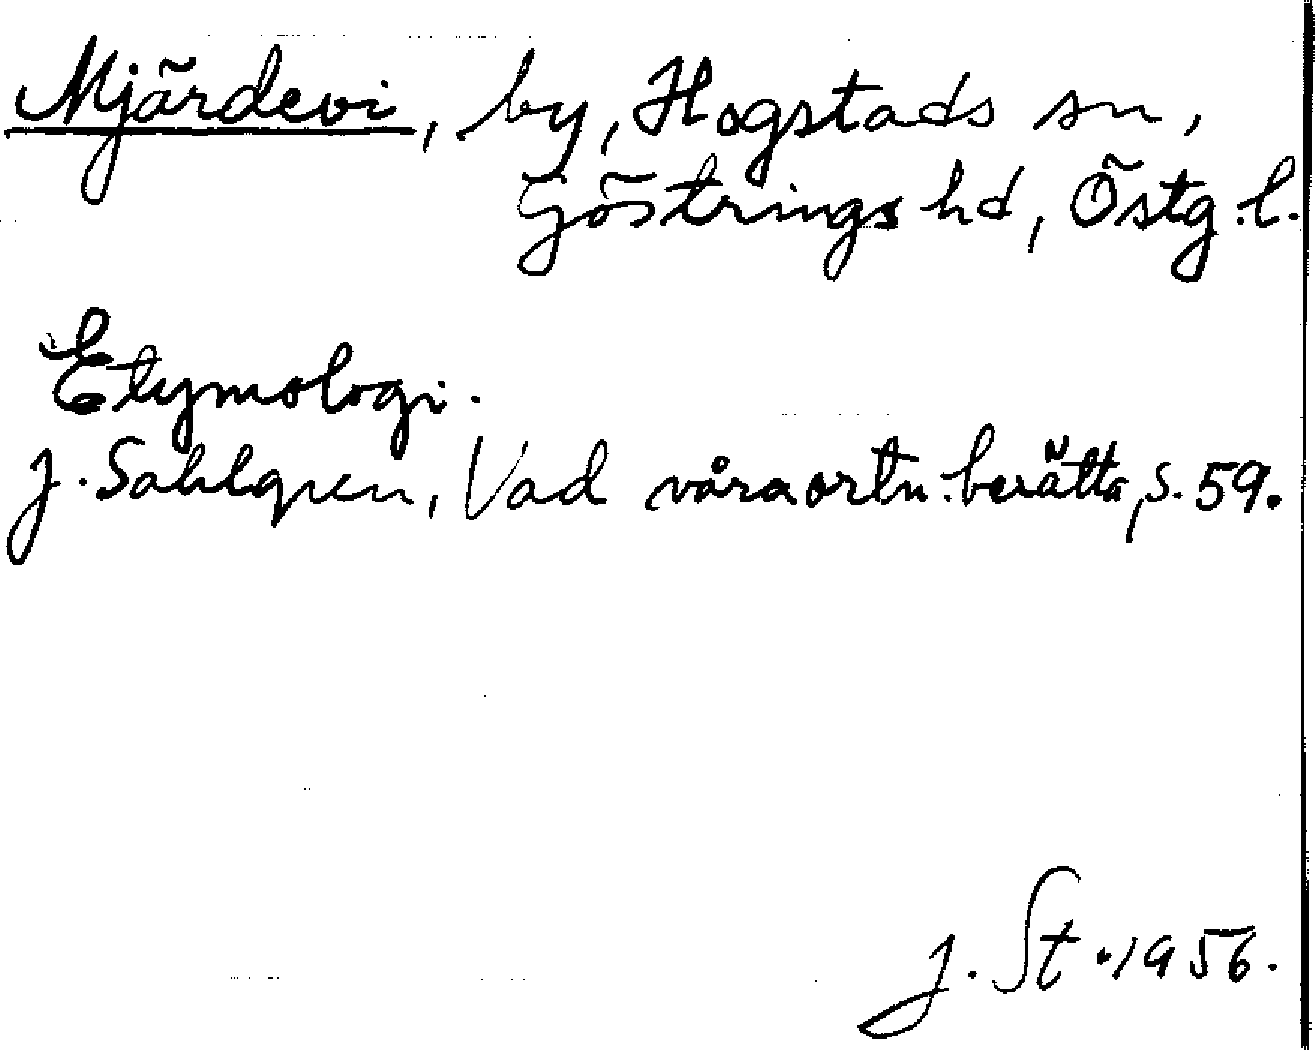 Mjärdevi, by, Hogstads sn,
Göstrings hd, Östg.l.
Etymologi.
J. Sahlgren, Vad våra ortn. berätta, s. 59.
J. St. 1956.